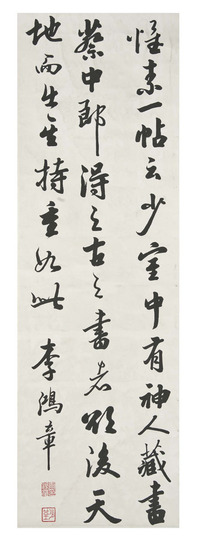 怪素一帖云少室中有神人藏书
蔡中郎得之古之书者欲後天
地而出其持重如此 李鴻章